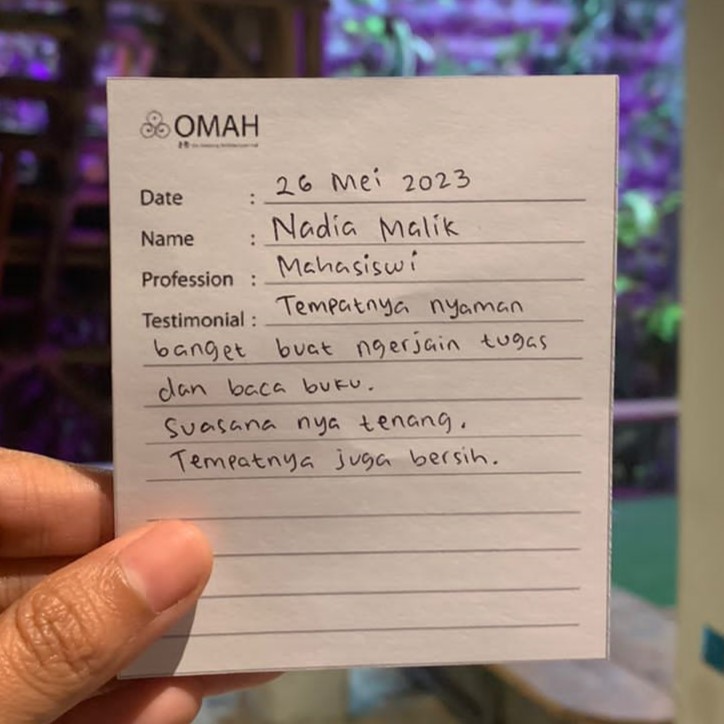 OMAH
Date : 26 Mei 2023
Name : Nadia Malik
Profession : Mahasiswi
Testimonial : Tempatnya nyaman
banget buat ngerjain tugas
dan baca buku.
Suasana nya tenang.
Tempatnya juga bersih.